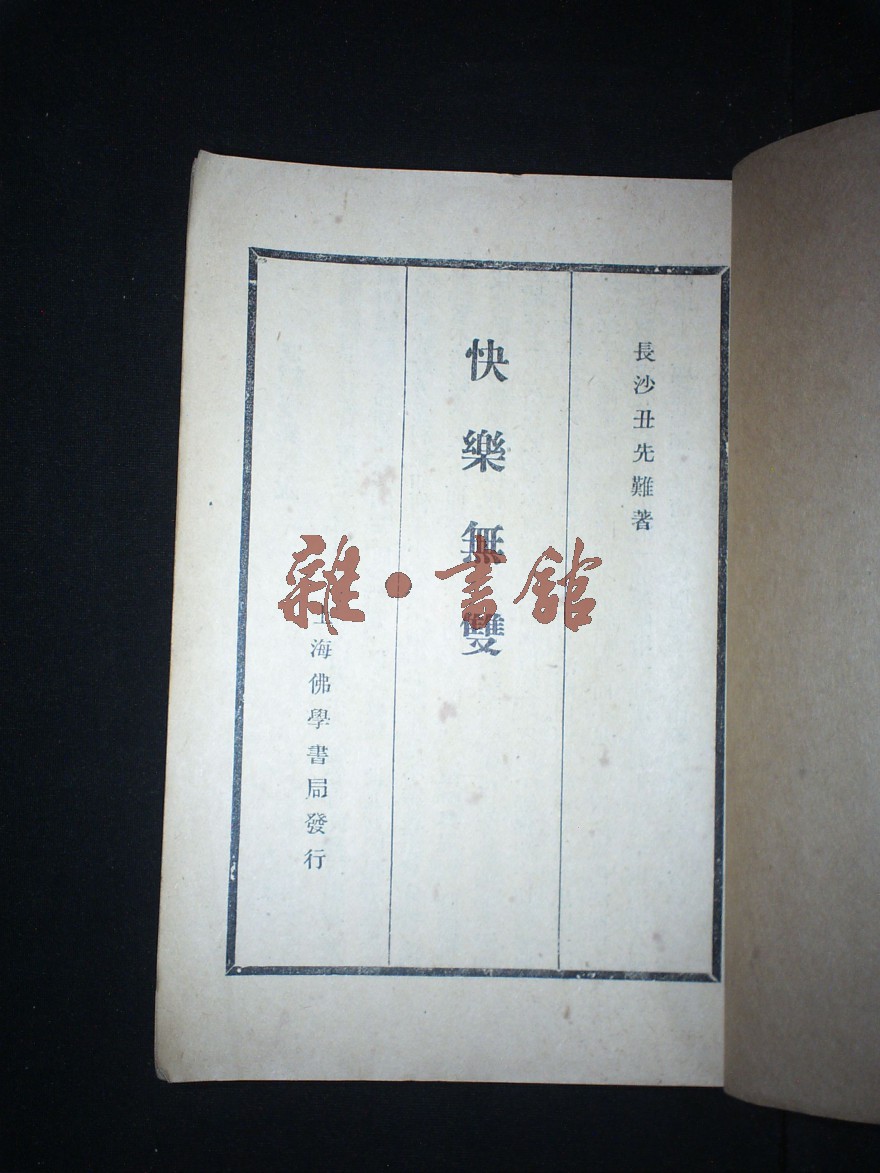 長沙丑先難著
快樂無雙
上海佛學書局發行
雜·書館